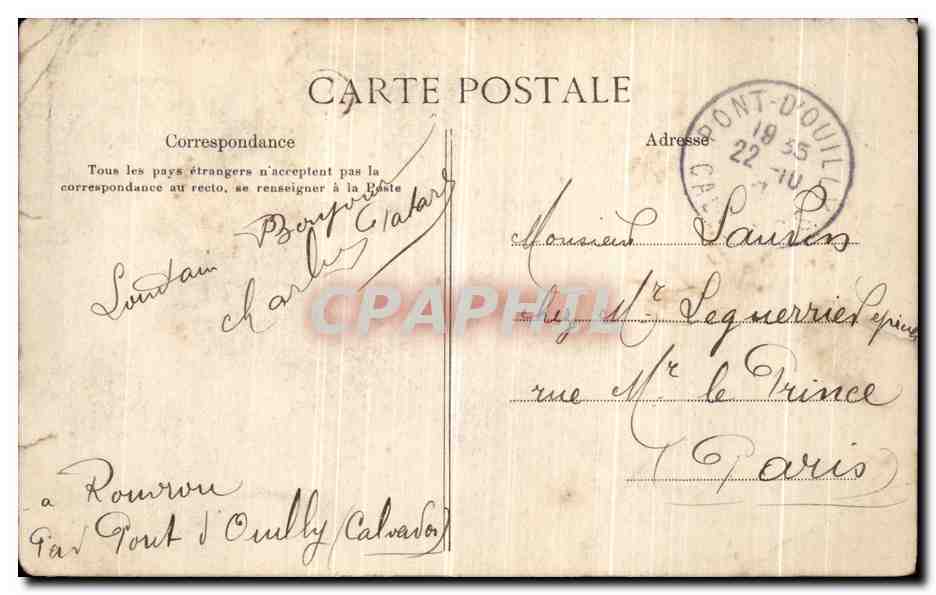 CARTE POSTALE
Correspondance
Tous les pays étrangers n'acceptent pas la
correspondance au recto, se renseigner à la Poste
Lointain Bonjour
Charles
à Rouvrou
Par Pont d'Ouilly (Calvados)
Adresse
PONT-D'OUILLY
19 35
22 - 10
CAL
Monsieur
chez Mr Leguerrier épicier
rue Mr le Prince
Paris
CPAPHIL